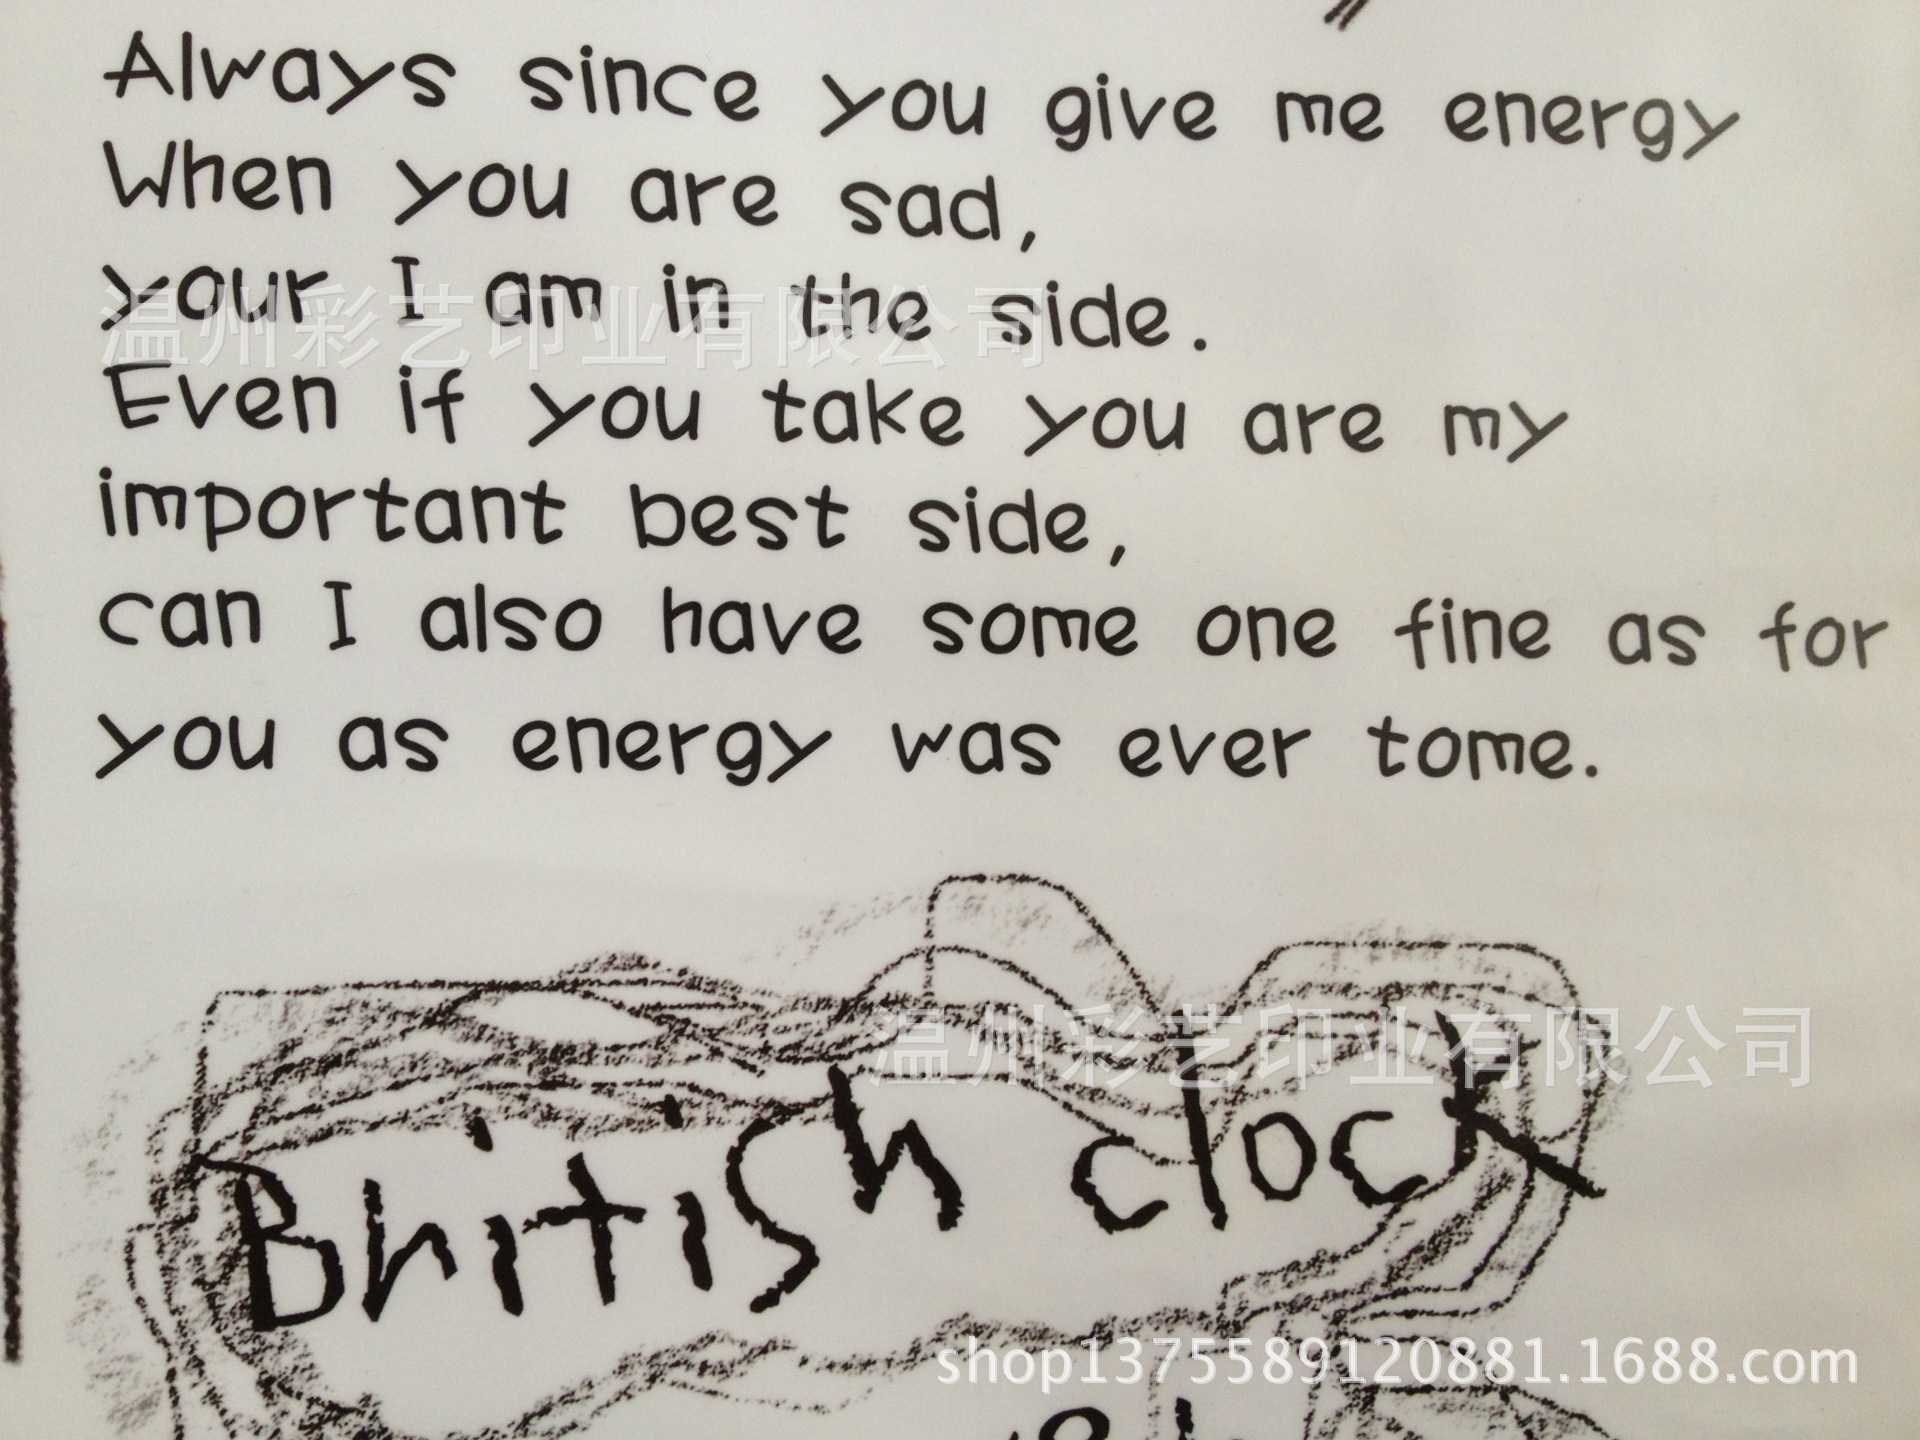 Always since you give me energy
When you are sad,
your I am in the side.
温州彩艺印业有限公司
Even if you take you are my
important best side,
can I also have some one fine as for
you as energy was ever tome.
温州彩艺印业有限公司
British clock
shop1375589120881.1688.com